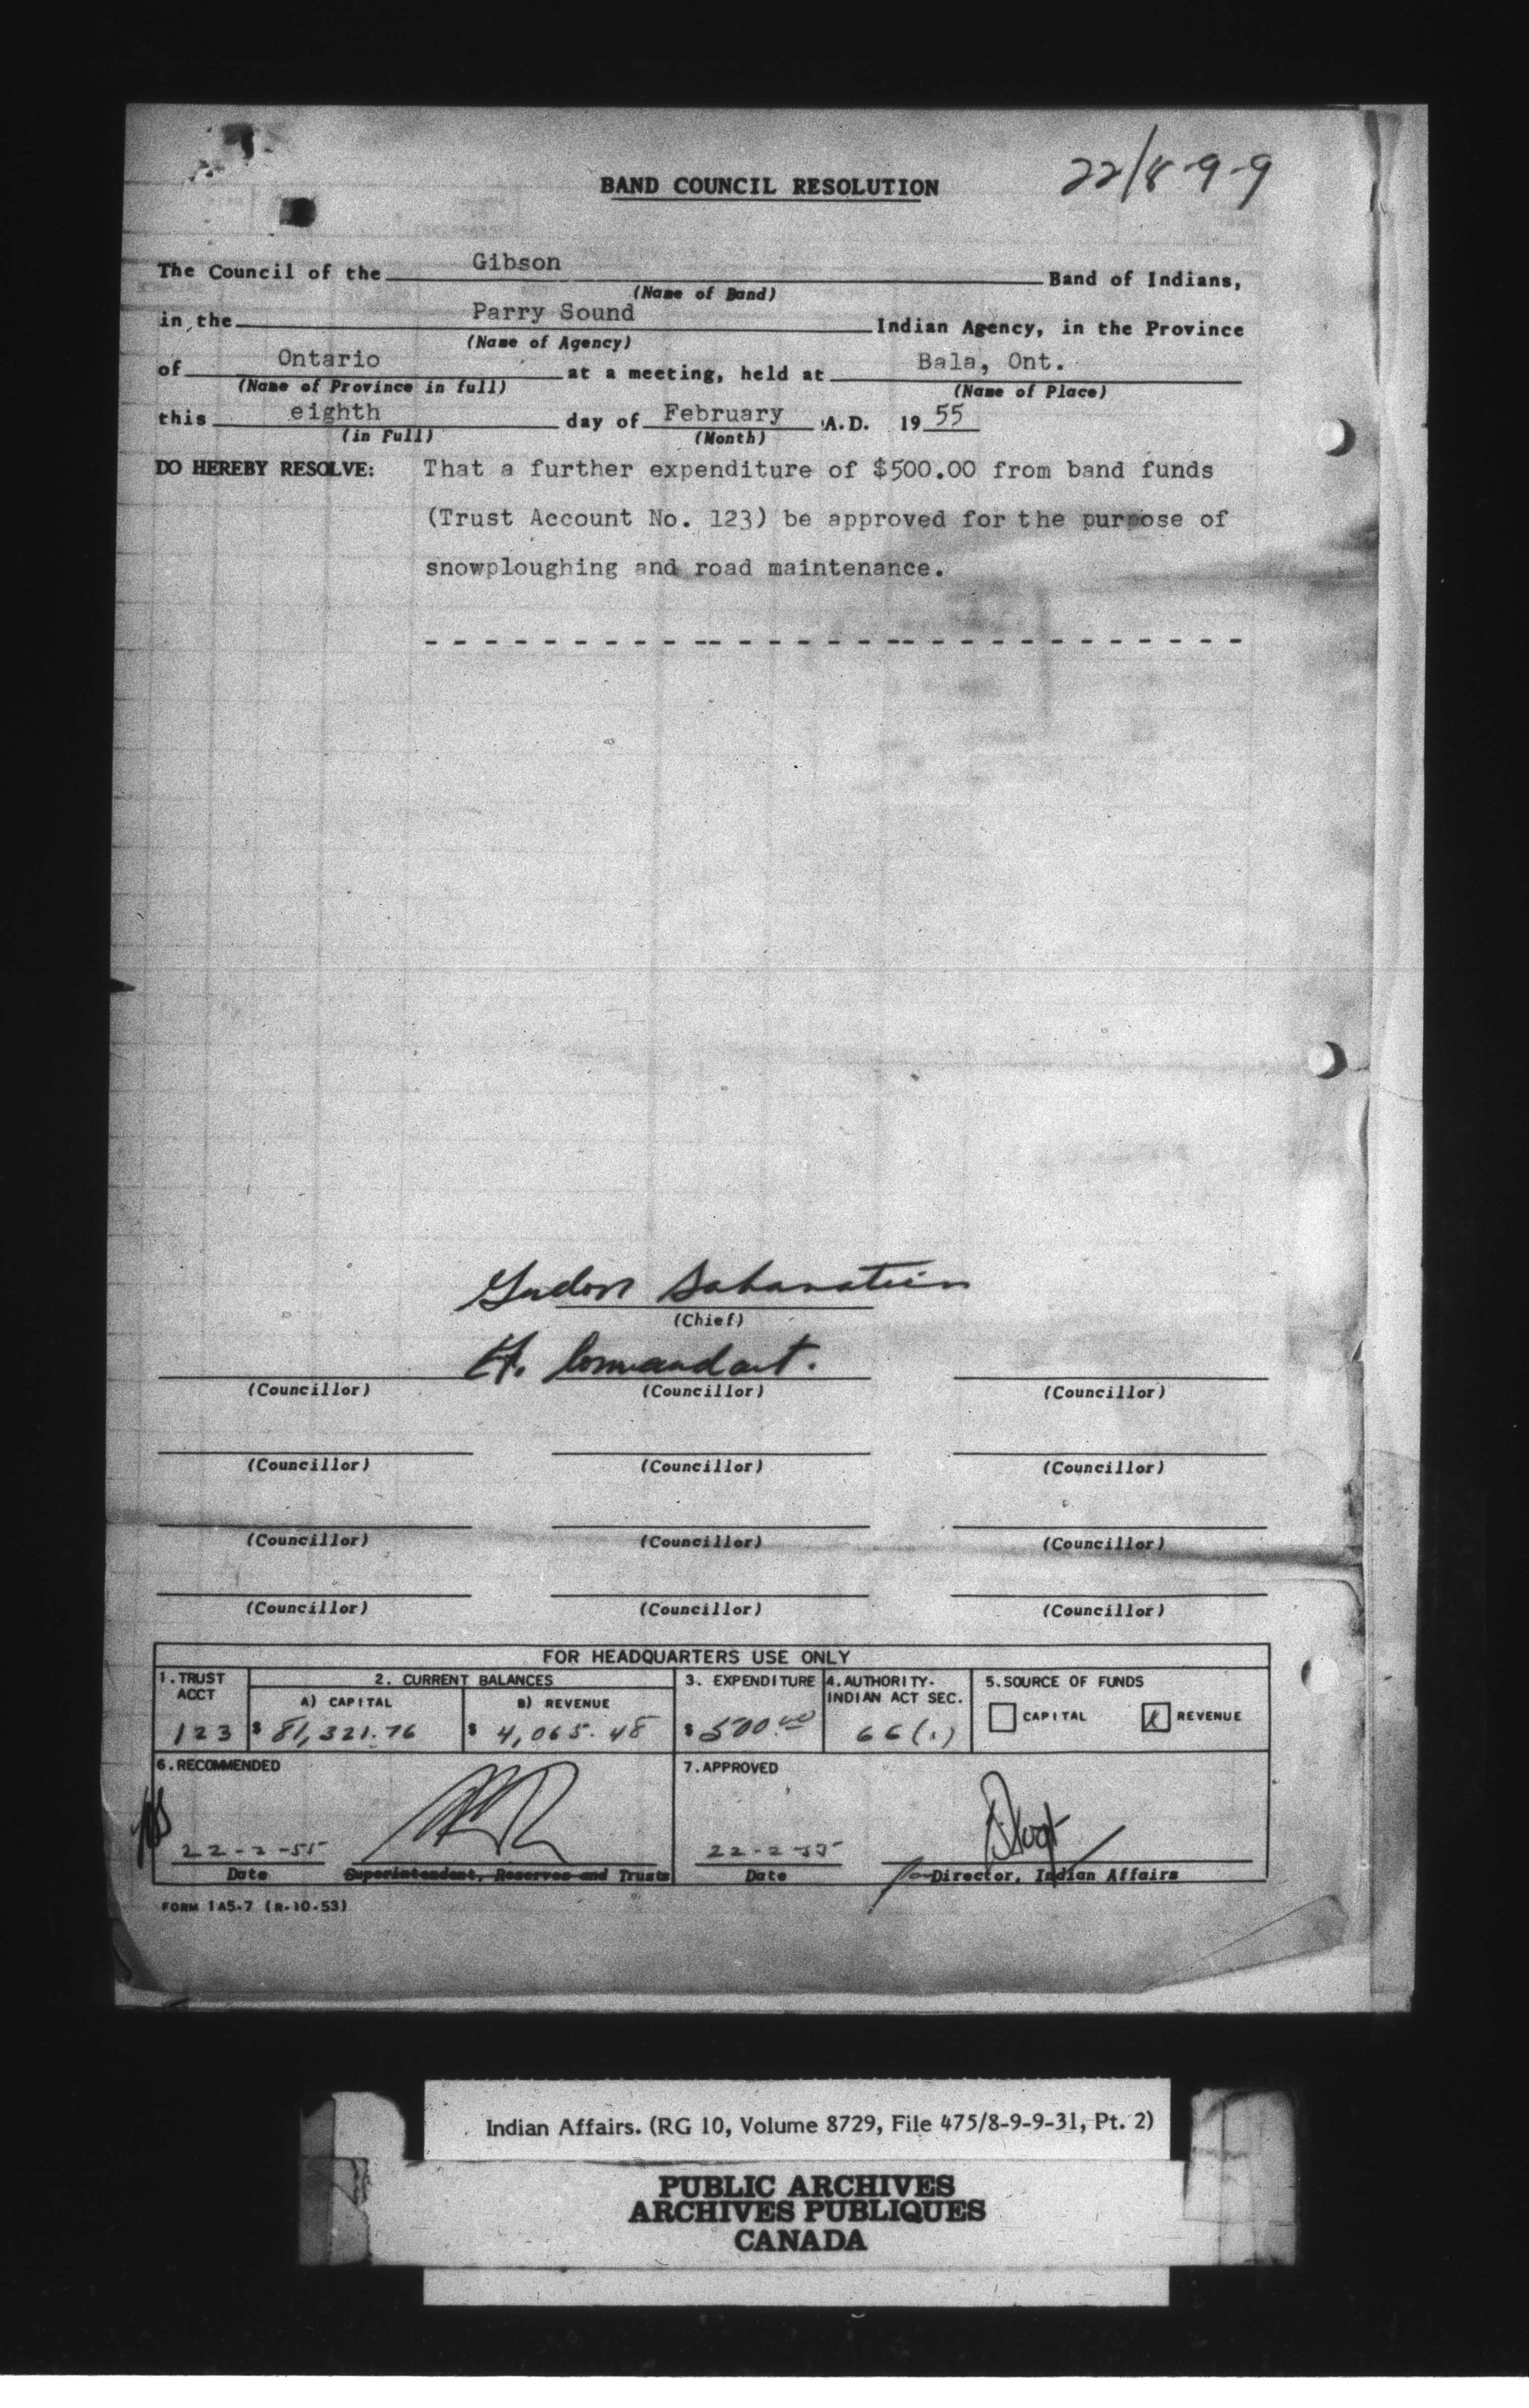 BAND COUNCIL RESOLUTION
22/8-9-9
The Council of the Gibson Band of Indians,
(Name of Band)
in the Parry Sound Indian Agency, in the Province
(Name of Agency)
of Ontario at a meeting, held at Bala, Ont.
(Name of Province in full) (Name of Place)
this eighth day of February A.D. 19 55
(in Full) (Month)
DO HEREBY RESOLVE: That a further expenditure of $500.00 from band funds
(Trust Account No. 123) be approved for the purpose of
snowploughing and road maintenance.
(Chief)
H. Commandant.
(Councillor) (Councillor) (Councillor)
(Councillor) (Councillor) (Councillor)
(Councillor) (Councillor) (Councillor)
(Councillor) (Councillor) (Councillor)
FOR HEADQUARTERS USE ONLY
1. TRUST ACCT 2. CURRENT BALANCES 3. EXPENDITURE 4. AUTHORITY- INDIAN ACT SEC. 5. SOURCE OF FUNDS
A) CAPITAL B) REVENUE CAPITAL X REVENUE
123 $ 81,321.76 $ 4,065.48 $ 500.00 66(1)
6. RECOMMENDED 7. APPROVED
22-2-55 22-2-55
Date Superintendent, Reserves and Trusts Date for Director, Indian Affairs
FORM 1A5-7 (R-10-53)
Indian Affairs. (RG 10, Volume 8729, File 475/8-9-9-31, Pt. 2)
PUBLIC ARCHIVES
ARCHIVES PUBLIQUES
CANADA